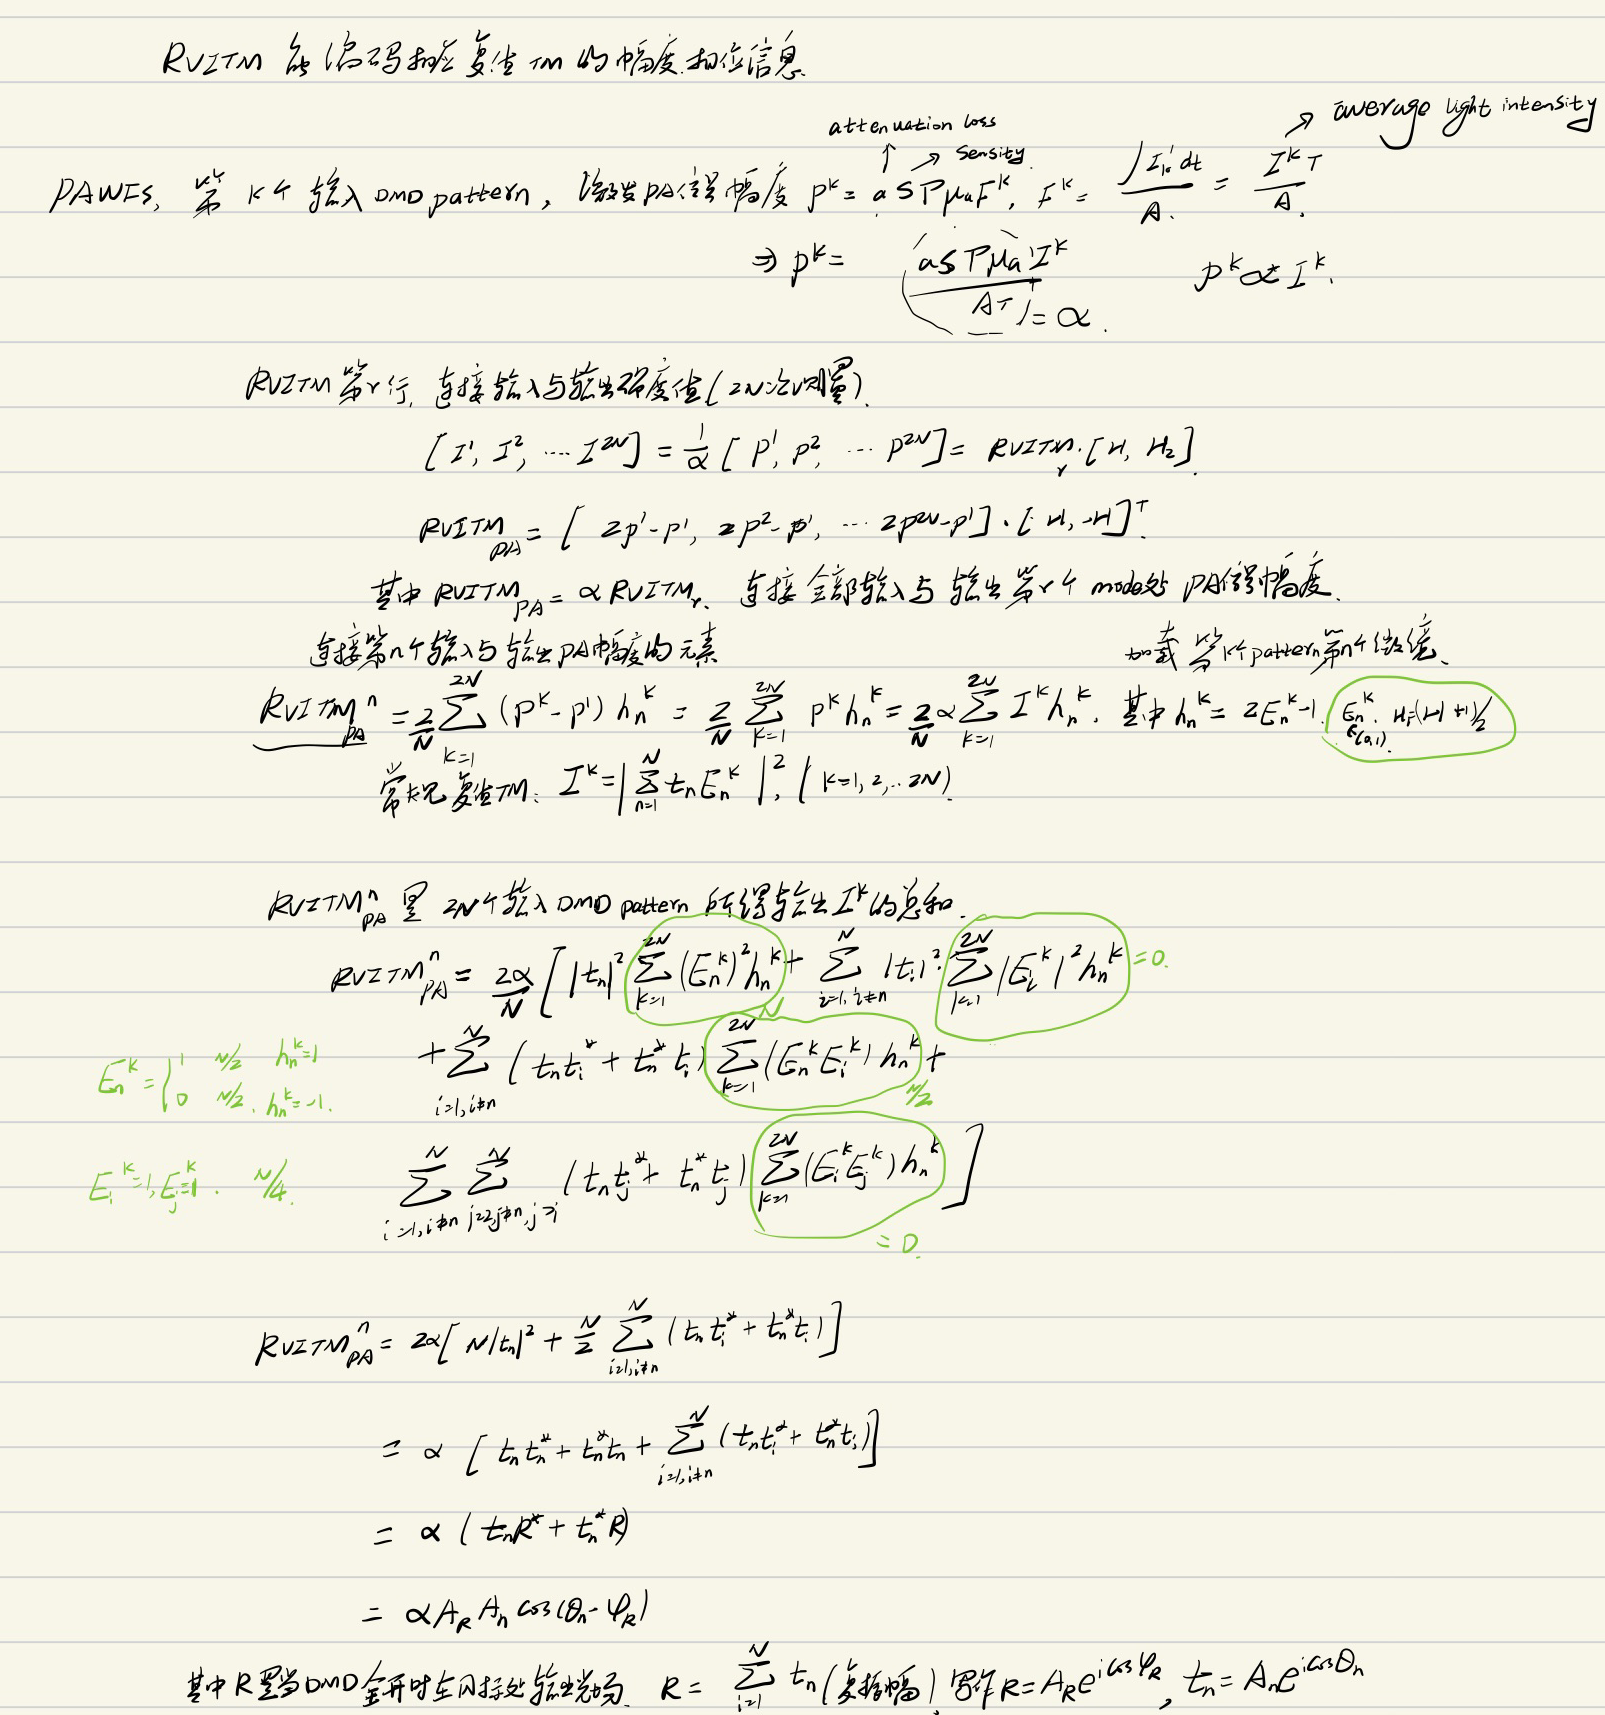 RVITM 能编码相应复值 TM 的幅度.相位信息
average light intensity
attenuation loss
sensity
PAWFS, 第 K个 输入 DMD pattern, 激发PA信号幅度 P^k = a S Γ μ_a F^k, F^k = ∫I_k' dt / A. = I^k T / A.
⇒ p^k = (a S Γ μ_a I^k / A T) = α. p^k ∝ I^k.
RVITM 第r行, 连接输入与输出强度值(2N次测量).
[I^1, I^2, ... I^2N] = 1/α [P^1, P^2, ... P^2N] = RVITM_r · [H_1 H_2].
RVITM_PA = [2p^1-p^1, 2p^2-p^1, ... 2p^2N-p^1] · [H, -H]^T.
其中 RVITM_PA = α RVITM_r. 连接全部输入与输出第r个 mode处 PA信号幅度.
连接第n个输入与输出PA幅度的元素
加载第k个pattern第n个微镜.
RVITM_PA^n = 2/N Σ_{k=1}^{2N} (P^k - P^1) h_n^k = 2/N Σ_{k=1}^{2N} P^k h_n^k = 2/N α Σ_{k=1}^{2N} I^k h_n^k. 其中 h_n^k = 2E_n^k - 1.
常规复值TM: I^k = |Σ_{n=1}^{N} t_n E_n^k|^2, (k=1,2,..2N).
RVITM_PA^n 是 2N个输入 DMD pattern 所得输出 I^k 的总和.
RVITM_PA^n = 2α/N [|t_n|^2 Σ_{k=1}^{2N} (E_n^k)^2 h_n^k + Σ_{i=1,i≠n}^{N} |t_i|^2 · Σ_{k=1}^{2N} |E_i^k|^2 h_n^k = 0.
N
+ Σ_{i=1,i≠n}^{N} (t_n t_i^* + t_n^* t_i) Σ_{k=1}^{2N} (E_n^k E_i^k) h_n^k +
N/2
E_n^k = { 1 N/2 h_n^k=1
0 N/2. h_n^k=-1.
E_i^k=1, E_j^k=1. N/4.
Σ_{i=1,i≠n}^{N} Σ_{j=2,j≠n,j>i}^{N} (t_n t_j^* + t_n^* t_j) Σ_{k=1}^{2N} (E_i^k E_j^k) h_n^k ]
= 0.
RVITM_PA^n = 2α [N|t_n|^2 + N/2 Σ_{i=1,i≠n}^{N} (t_n t_i^* + t_n^* t_i)]
= α [t_n t_n^* + t_n^* t_n + Σ_{i=1,i≠n}^{N} (t_n t_i^* + t_n^* t_i)]
= α (t_n R^* + t_n^* R)
= α A_R A_n cos(θ_n - φ_R)
其中 R 是当DMD全开时在目标处输出光场. R = Σ_{i=1}^{N} t_n (复振幅), 写作 R = A_R e^{i cos φ_R}, t_n = A_n e^{i cos θ_n}